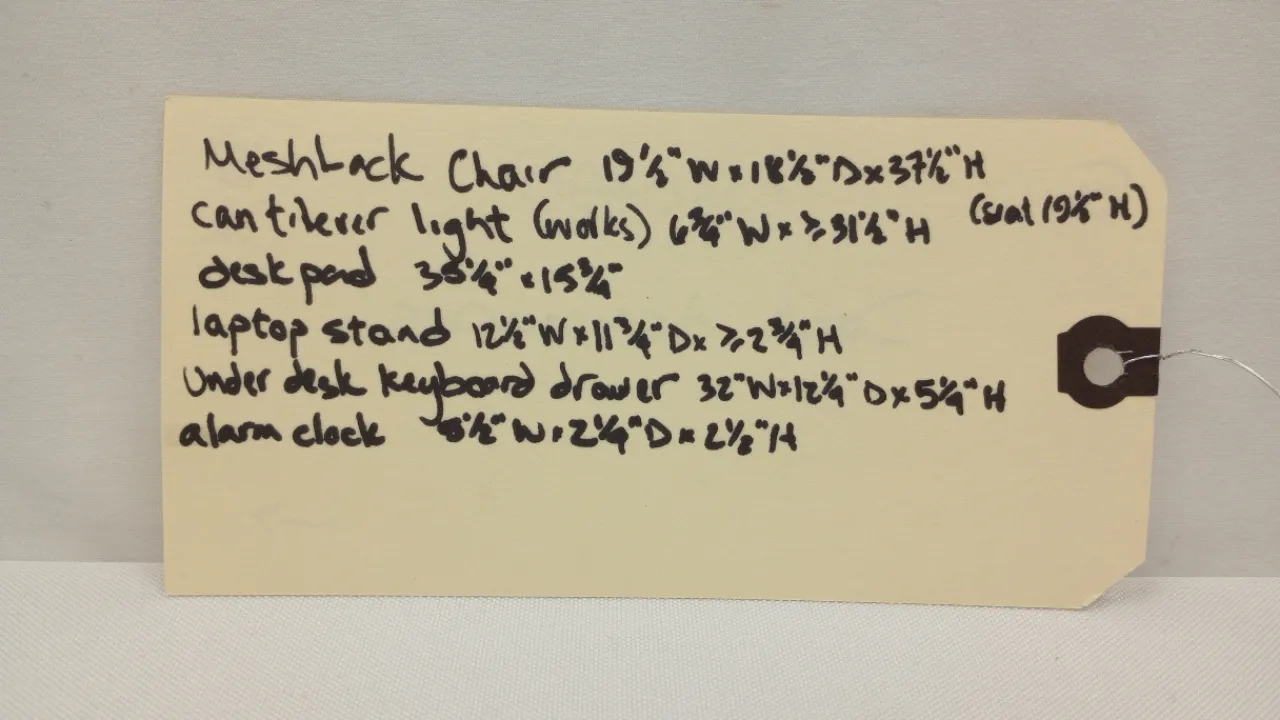 Meshback Chair 19½" W x 18½" D x 37½" H
(seat 19½" H)
cantilever light (works) 6¾" W x ≥31½" H
desk pad 35¼" x 15¾"
laptop stand 12½" W x 11¾" D x ≥2¾" H
Under desk keyboard drawer 32" W x 12¼" D x 5¼" H
alarm clock 5½" W x 2¼" D x 2½" H